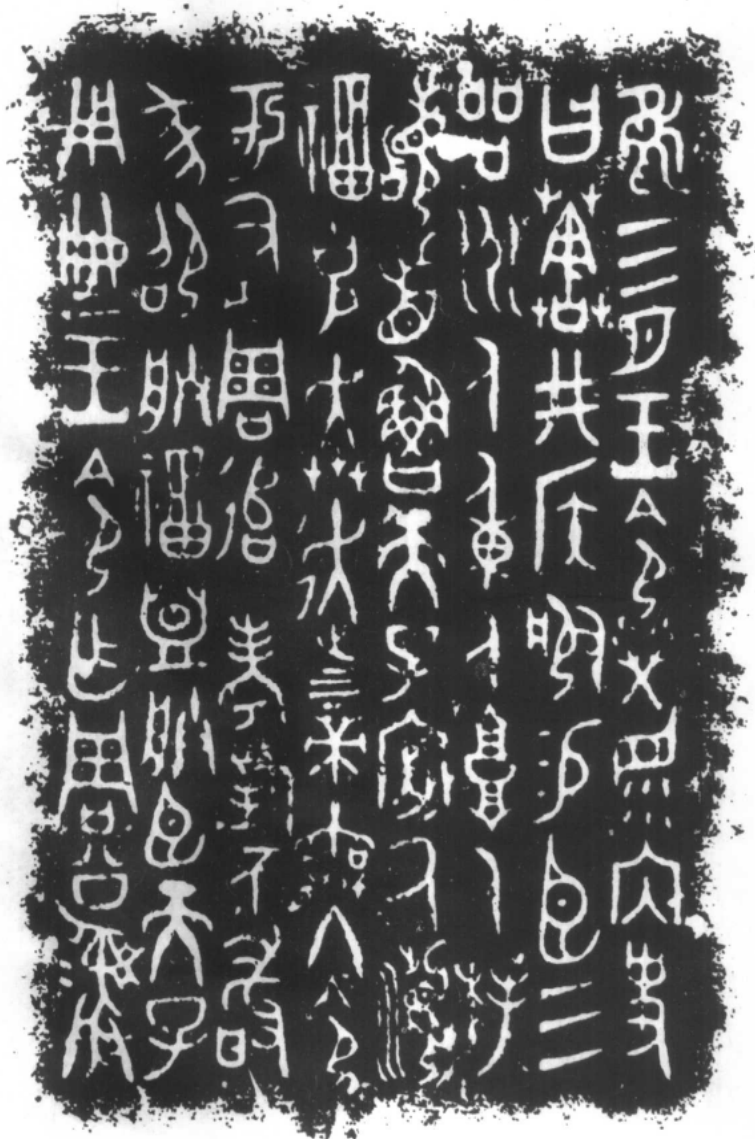 隹三月王令榮眔內史
曰𦲷井侯服易臣三
品州人重人𩫏人拜
稽首魯天子𠭯厥瀕
福克奔走上下帝無冬令
于有周追考對不敢
㒸邵朕福盟朕臣天子
用典王令乍周公彝